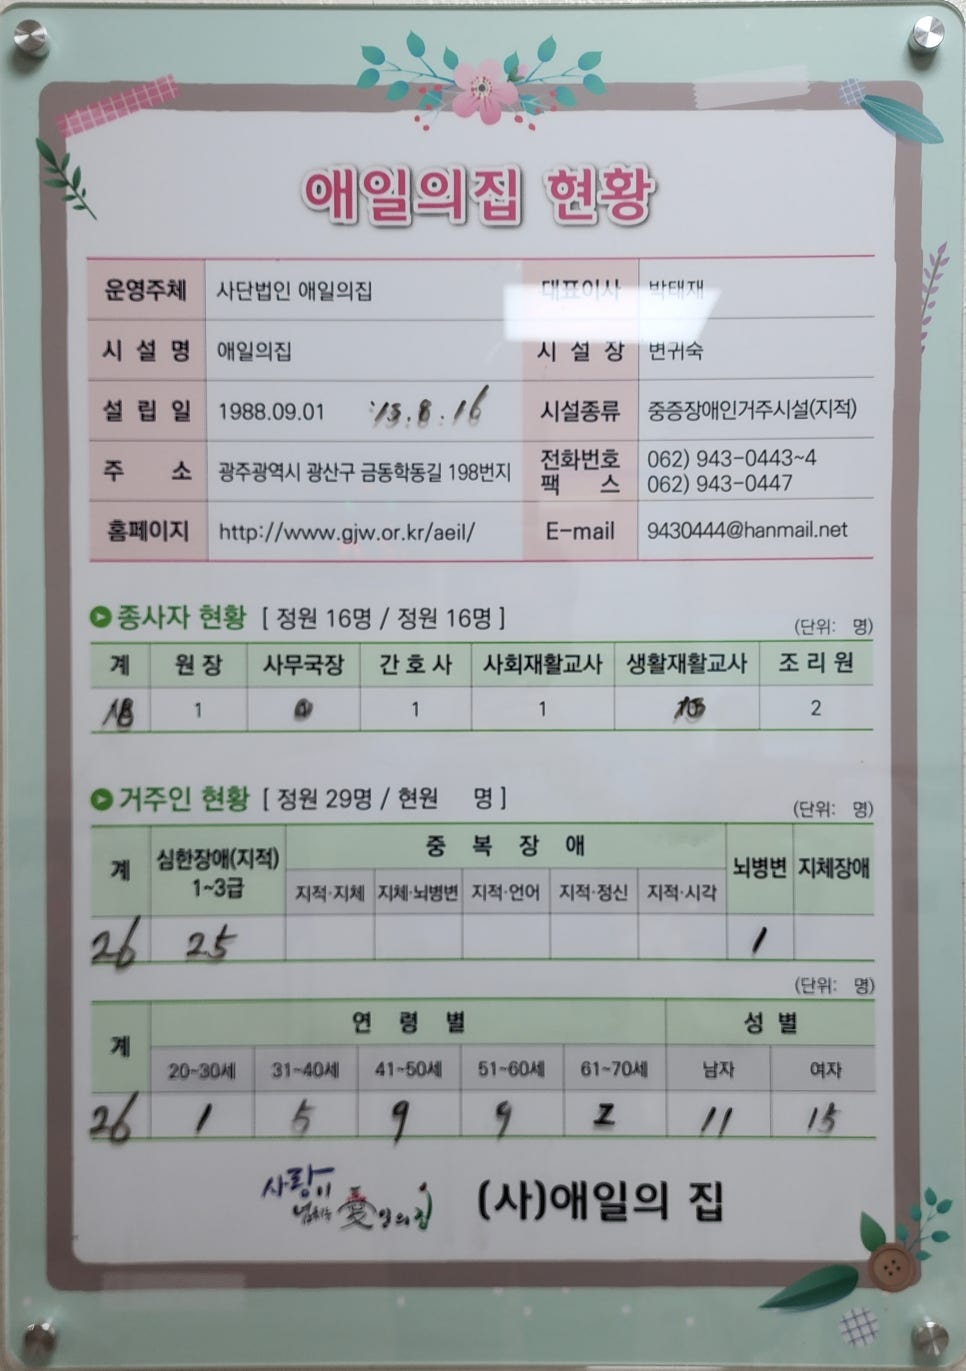 애일의집 현황
운영주체 사단법인 애일의집 대표이사 박태재
시 설 명 애일의집 시 설 장 변귀숙
설 립 일 1988.09.01 시설종류 중증장애인거주시설(지적)
주 소 광주광역시 광산구 금동학동길 198번지 전화번호 062) 943-0443~4
팩 스 062) 943-0447
홈페이지 http://www.gjw.or.kr/aeil/ E-mail 9430444@hanmail.net
종사자 현황 [ 정원 16명 / 정원 16명 ]
(단위: 명)
계 원 장 사무국장 간 호 사 사회재활교사 생활재활교사 조 리 원
1 1 1 2
거주인 현황 [ 정원 29명 / 현원 명 ]
(단위: 명)
계 심한장애(지적) 1~3급 중 복 장 애 뇌병변 지체장애
지적·지체 지체·뇌병변 지적·언어 지적·정신 지적·시각
26 25 1
(단위: 명)
계 연 령 별 성 별
20~30세 31~40세 41~50세 51~60세 61~70세 남자 여자
26 1 5 9 9 2 11 15
사랑이
넘치는 愛일의집
(사)애일의 집